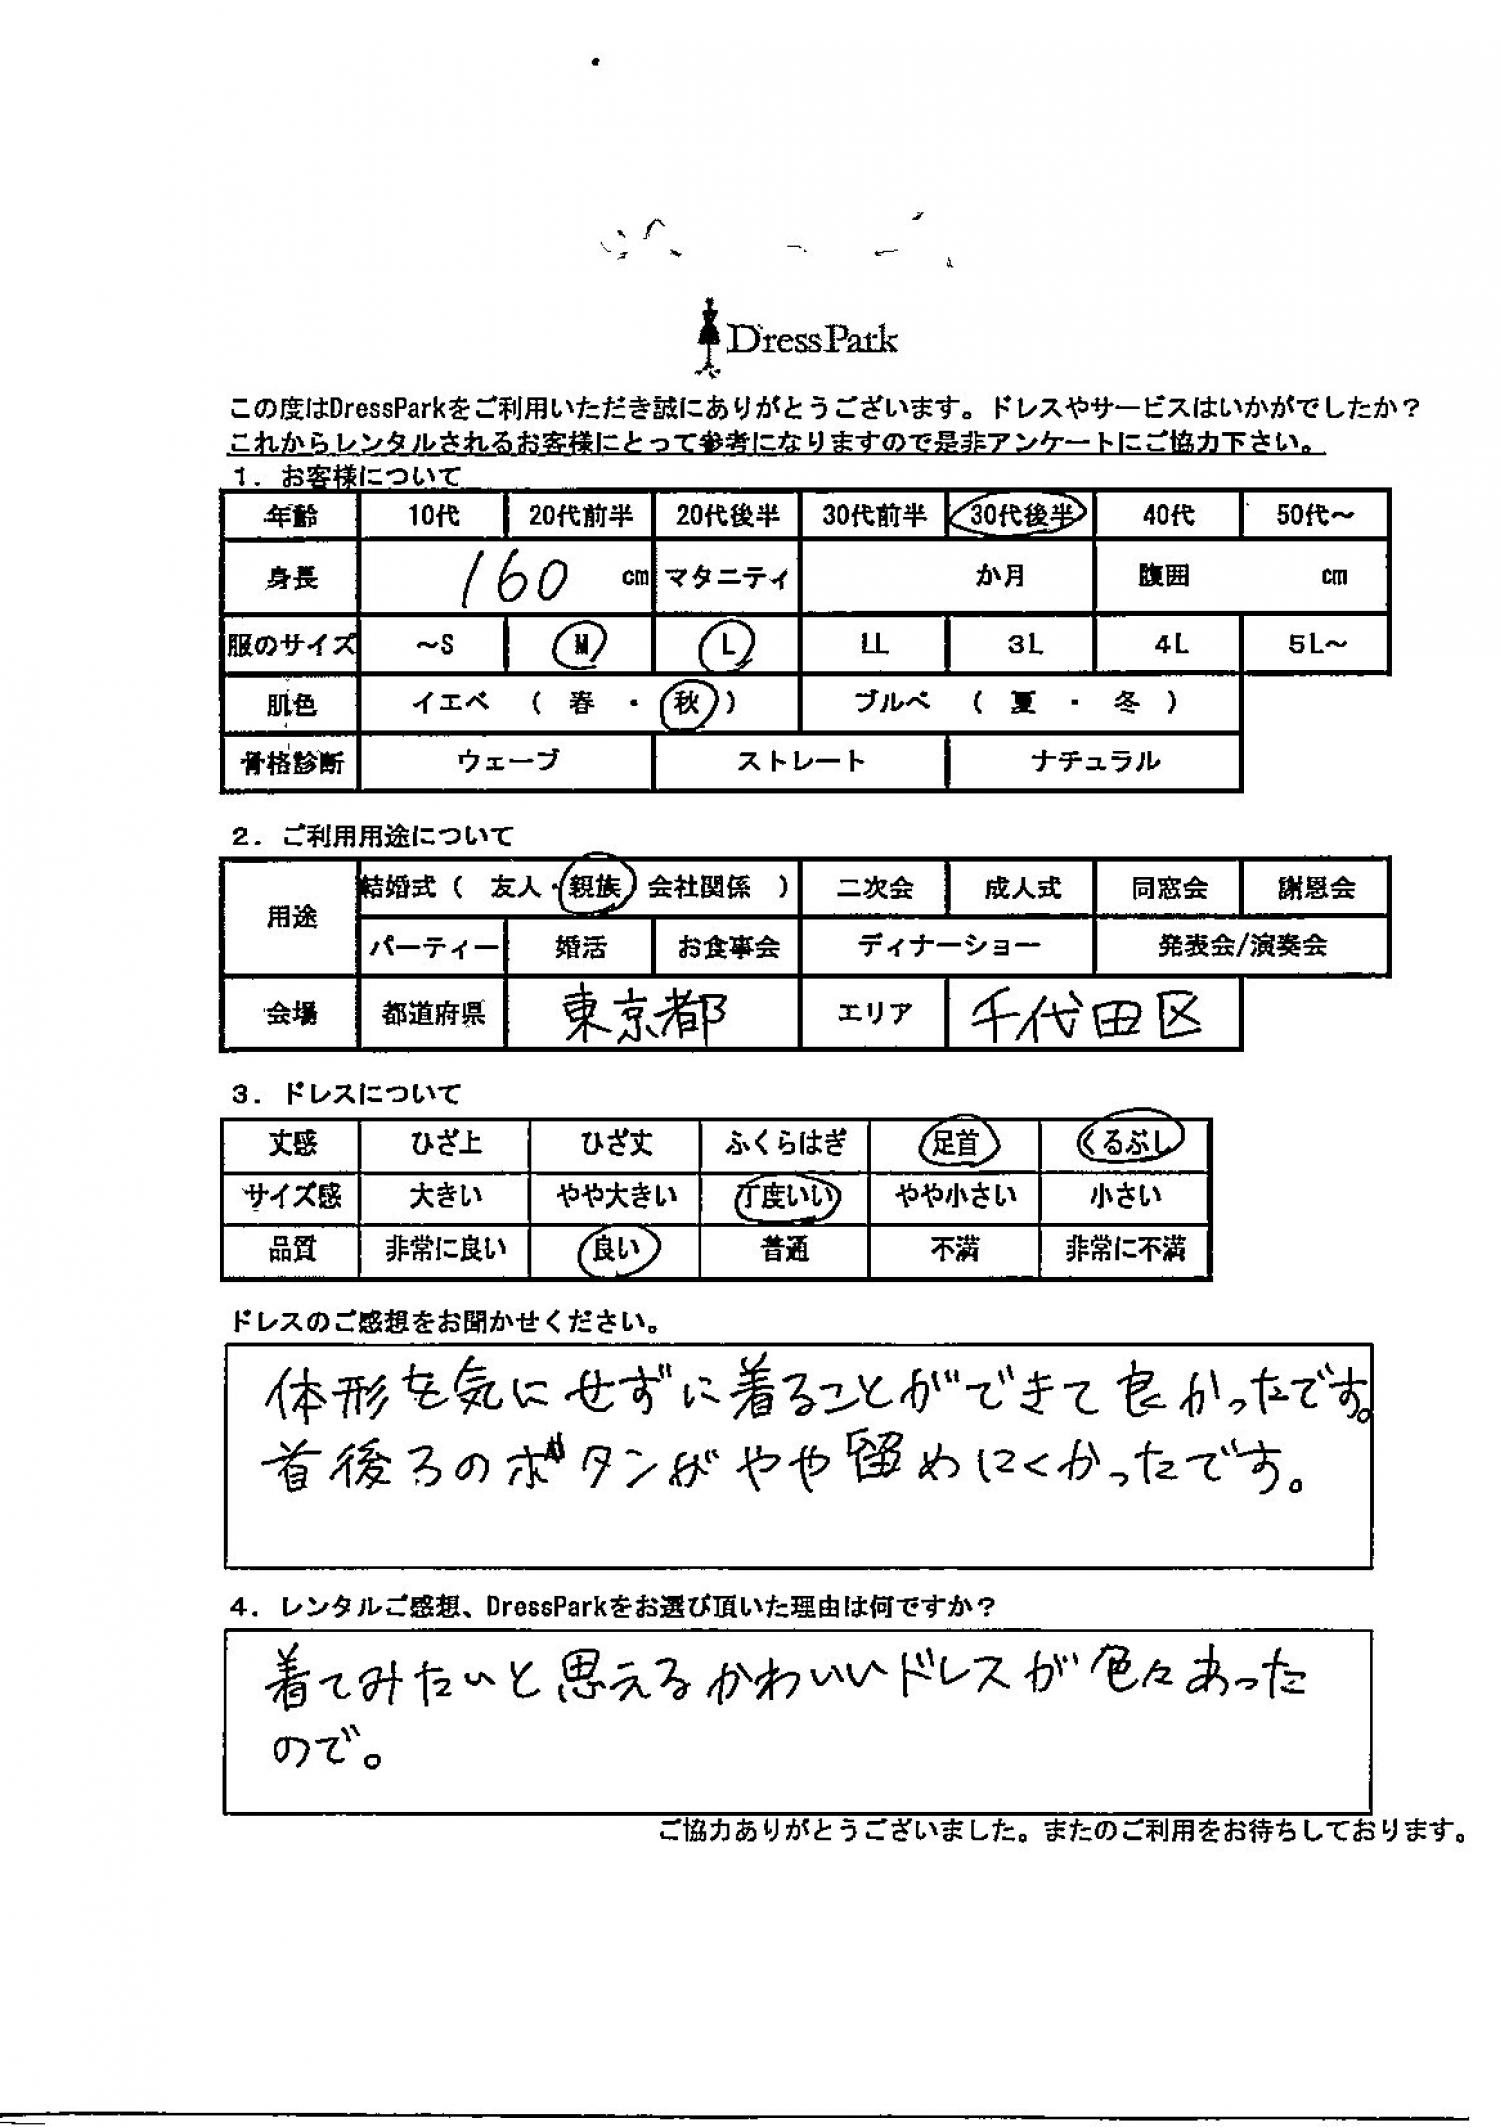 DressPark
この度はDressParkをご利用いただき誠にありがとうございます。ドレスやサービスはいかがでしたか？
これからレンタルされるお客様にとって参考になりますので是非アンケートにご協力下さい。
1．お客様について
年齢 10代 20代前半 20代後半 30代前半 30代後半 40代 50代～
身長 160 cm マタニティ か月 腹囲 cm
服のサイズ ～S M L LL 3L 4L 5L～
肌色 イエベ （ 春 ・ 秋 ） ブルベ （ 夏 ・ 冬 ）
骨格診断 ウェーブ ストレート ナチュラル
2．ご利用用途について
用途 結婚式（ 友人・親族 会社関係 ） 二次会 成人式 同窓会 謝恩会
パーティー 婚活 お食事会 ディナーショー 発表会/演奏会
会場 都道府県 東京都 エリア 千代田区
3．ドレスについて
丈感 ひざ上 ひざ丈 ふくらはぎ 足首 くるぶし
サイズ感 大きい やや大きい 丁度いい やや小さい 小さい
品質 非常に良い 良い 普通 不満 非常に不満
ドレスのご感想をお聞かせください。
体形を気にせずに着ることができて良かったです。
首後ろのボタンがやや留めにくかったです。
4．レンタルご感想、DressParkをお選び頂いた理由は何ですか？
着てみたいと思えるかわいいドレスが色々あった
ので。
ご協力ありがとうございました。またのご利用をお待ちしております。